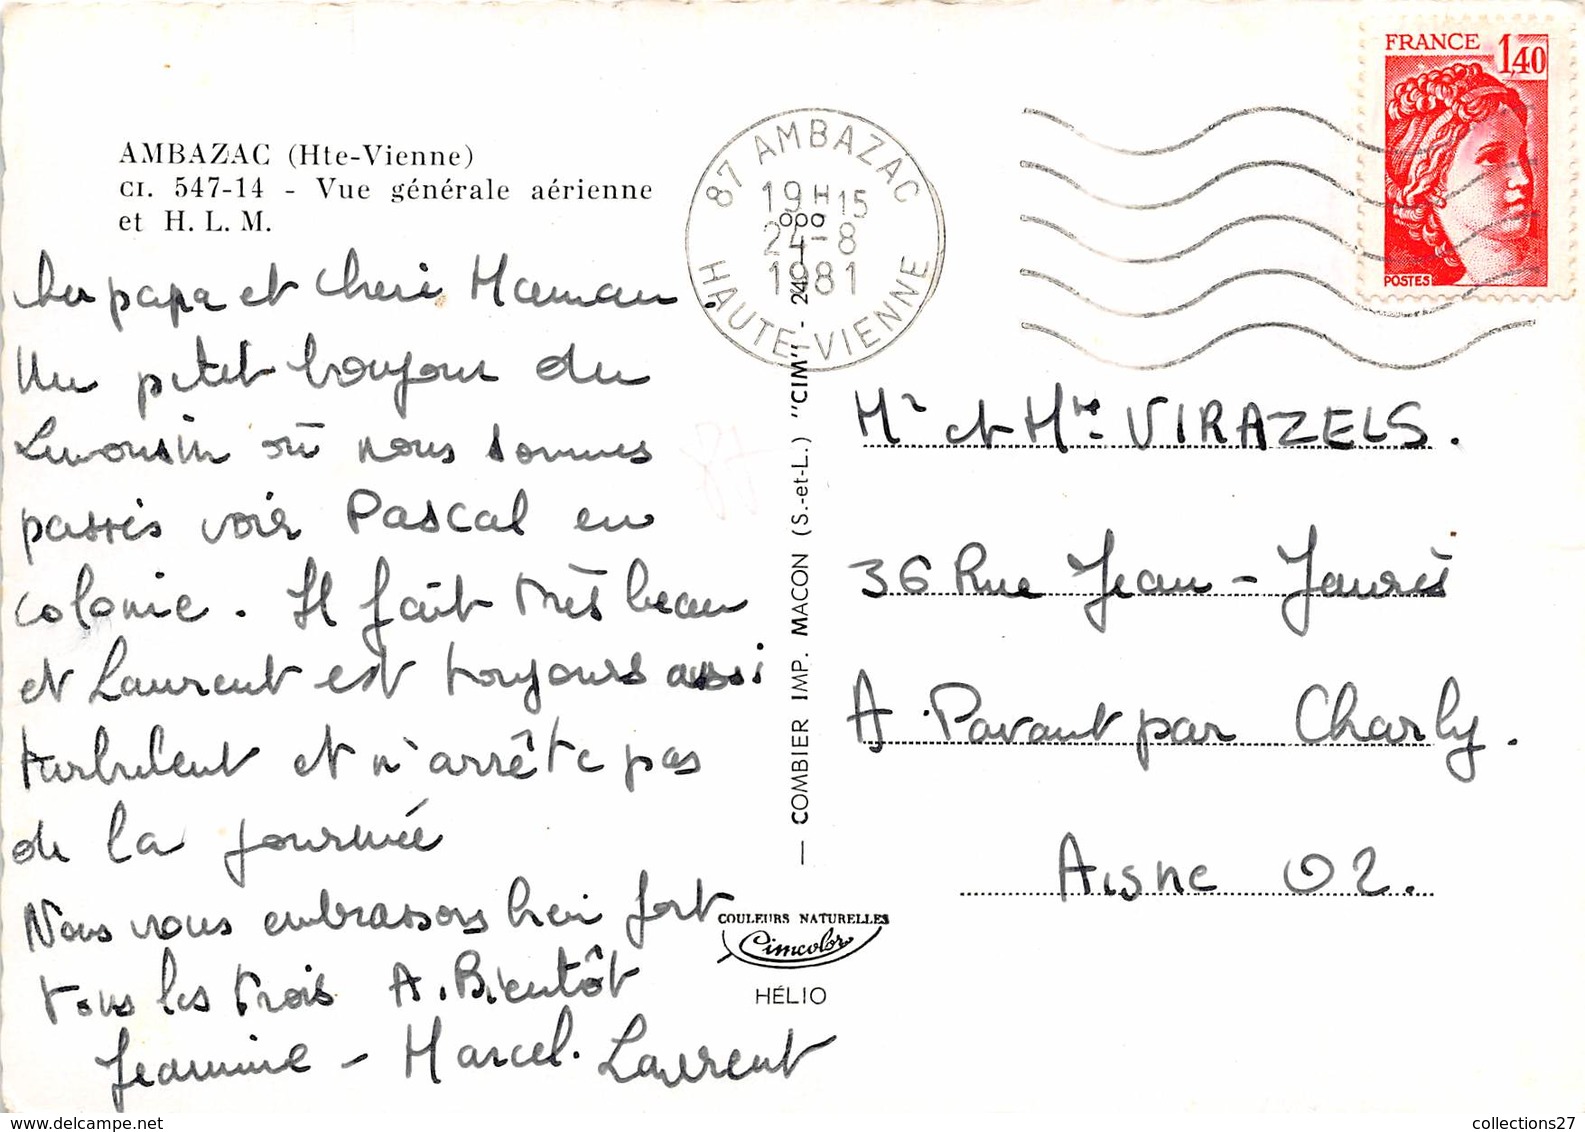 AMBAZAC (Hte-Vienne)
CI. 547-14 - Vue générale aérienne
et H. L. M.
Cher papa et Cheri Maman.
Un petit bonjour du
Limousin où nous sommes
passés voir Pascal en
colonie. Il fait très beau
et Laurent est toujours aussi
turbulent et n'arrête pas
de la journée
Nous vous embrassons bien fort
tous les trois A. Bientôt
Jeannine - Marcel. Laurent
87 AMBAZAC
19H15
24-8
1981
HAUTE-VIENNE
FRANCE 1,40
POSTES
— COMBIER IMP. MACON (S.-et-L.) "CIM" -
COULEURS NATURELLES
Cimcolor
HÉLIO
Mr et Mme VIRAZELS.
36 Rue Jean-Jaurès
A. Pavant par Charly.
Aisne 02.
www.delcampe.net
collections27